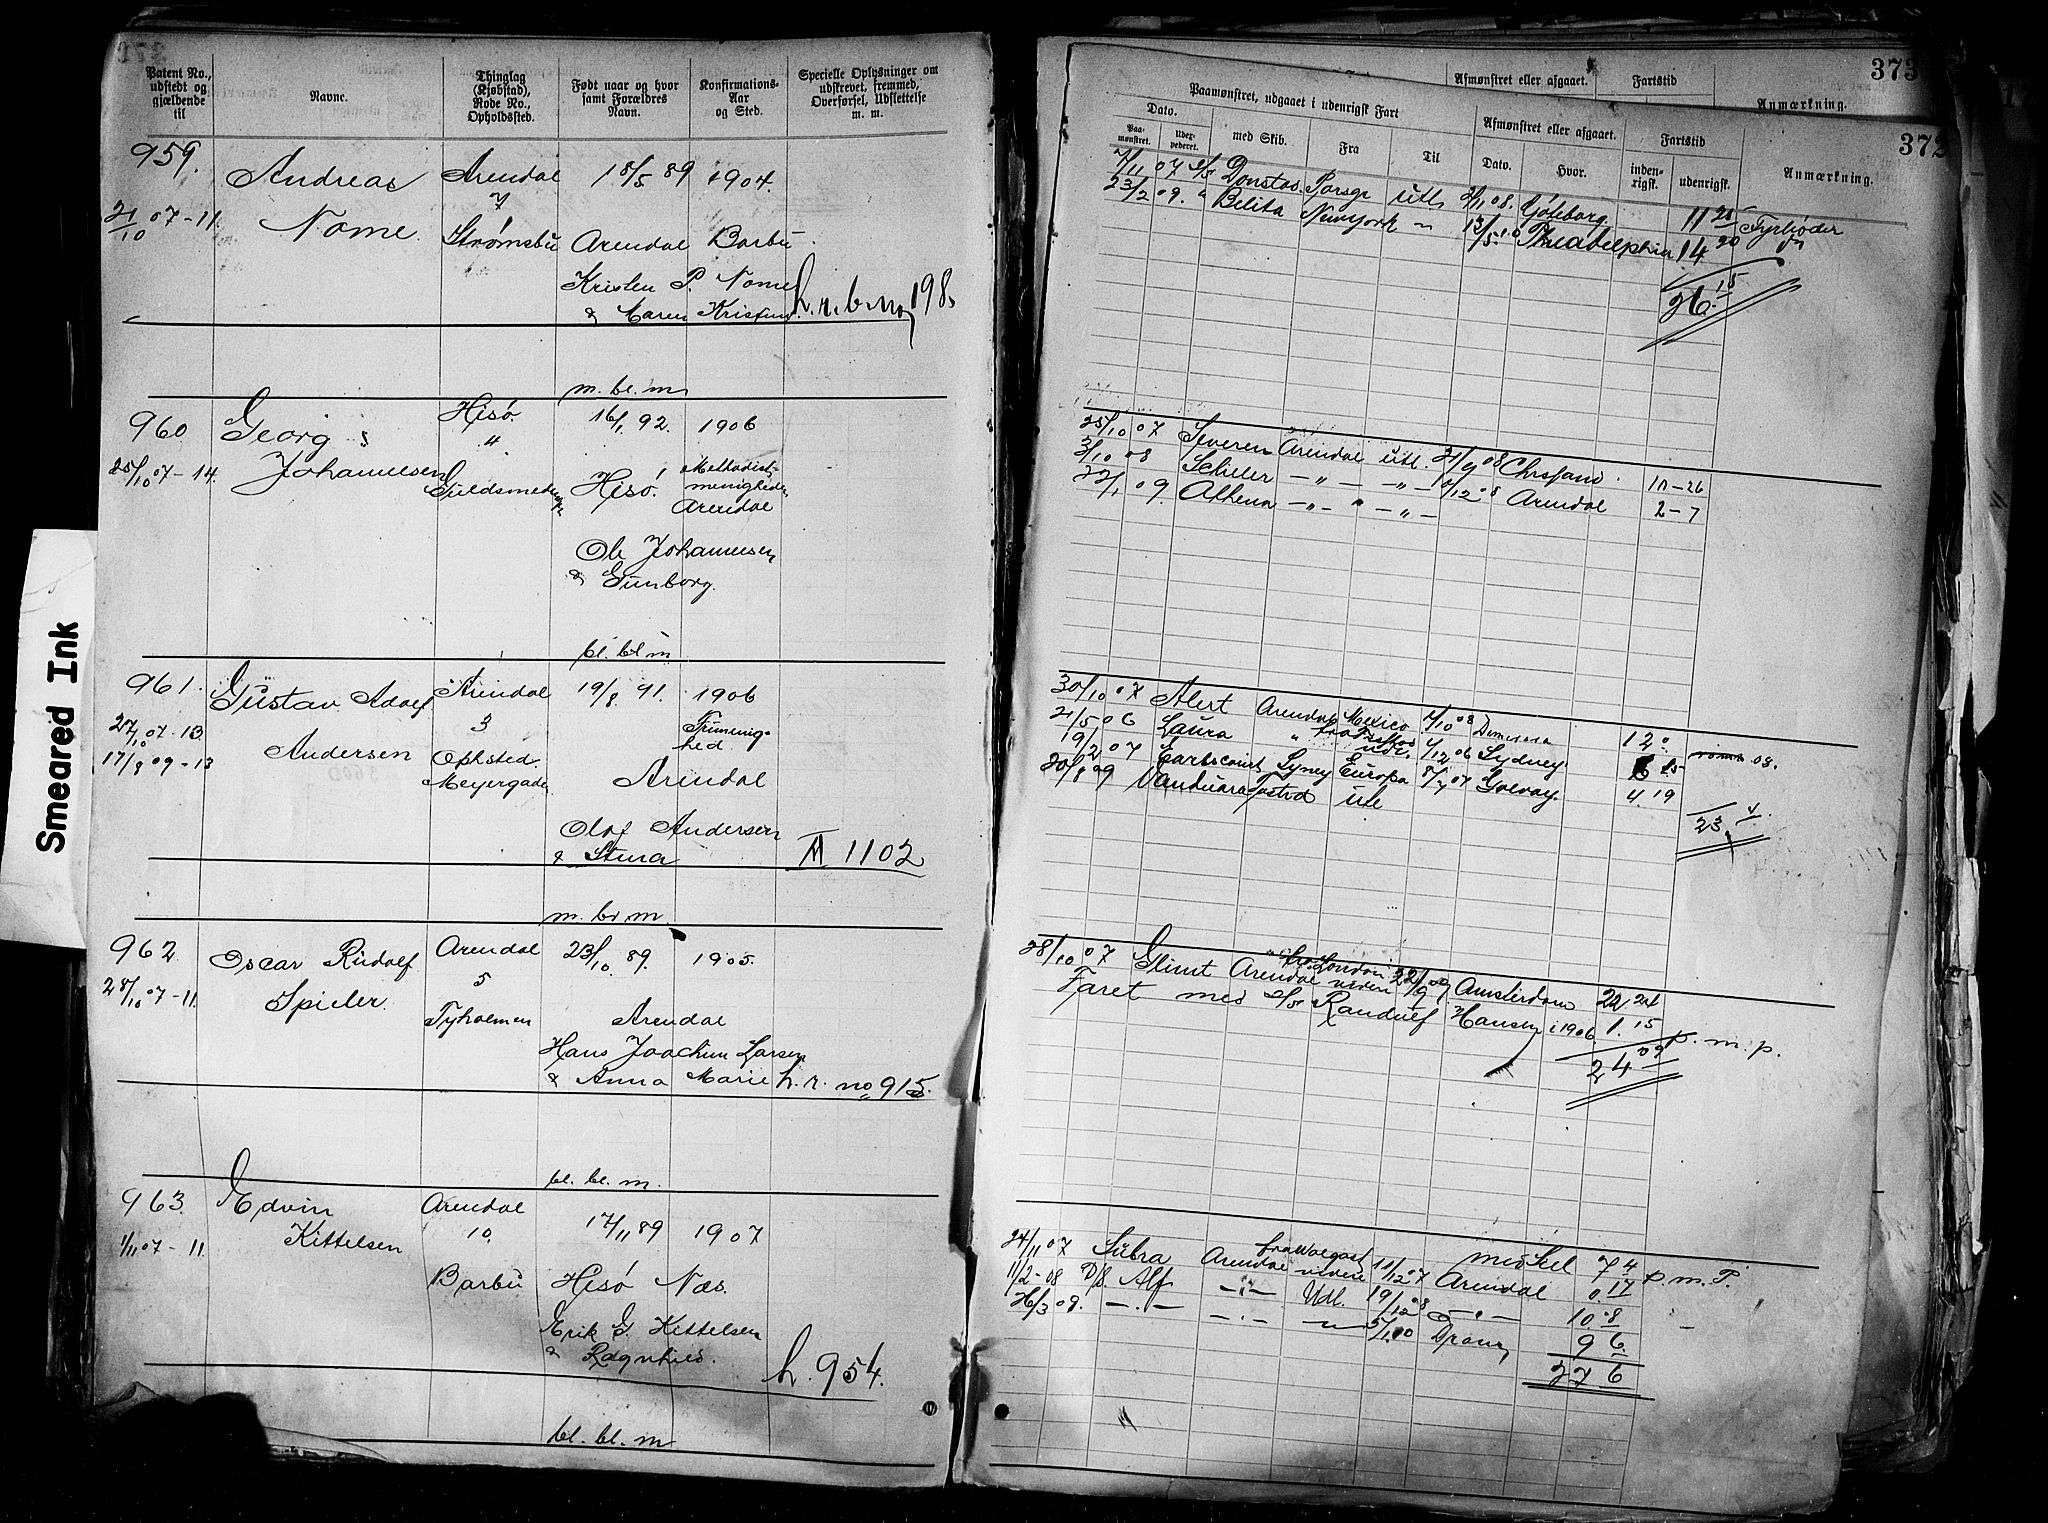 Smeared Ink
Patent No., udstedt og gjældende til
Navne.
Thinglag (Kjøbstad), Rode No., Opholdssted.
Født naar og hvor samt Forældres Navn.
Konfirmations-Aar og Sted.
Specielle Oplysninger om udskrevet, fremmed, Overførsel, Udslettelse m. m.
959. Andreas Arendal 18/5 89 1904.
21/10 07-11. Nome. 7
Strømsbu Arendal Barbu
Kristen P. Nome
& Maren Kristine. h.r.b. no 198.
m. bl. m
960 Georg Hisø 16/1 92. 1906
25/10 07-14. Johannesen " Methodist-
Hisø. menigheden
Arendal
Ole Johannesen
& Gunborg.
bl. bl m
961. Gustav Adolf Arendal 19/8 91. 1906
27/10 07-13 3 Frimenig-
17/8 09-13 Andersen Opksted. hed.
Meyergaden Arendal
Olaf Andersen
& Stina 1102
m. br. m.
962 Oscar Rudolf Arendal 23/10 89. 1905.
28/10 07-11. Spieler. 5
Tyholmen Arendal
Hans Joachim Larsen
& Anna Marie h. r. no 915.
bl. bl. m.
963. Edvin Arendal 17/11 89 1907
1/11 07-11. Kittelsen 10.
Barbu Hisø Næs.
Erik G. Kittelsen
& Ragnhild. h. 954.
bl. bl. m
373
Afmønstret eller afgaaet. Fartstid
Anmærkning.
372
Paamønstret, udgaaet i udenrigsk Fart
Afmønstret eller afgaaet. Fartstid
Dato.
Paamønstret. Udexpederet.
med Skib. Fra Til Dato. Hvor. indenrigsk. udenrigsk. Anmærkning.
7/11 07 Donstos. Porsgr utl 08. Gøteborg. 11 25 Fyrbøder
23/2 09. " Belita Newyork 13/5 10 Philadelphia 14 20
26. 15
25/10 07 Severen Arendal utl. 21/9 08 Chrsfand. 10-26
3/10 08 Schiller " " 12 08 Arendal 2-7
22/1 09. Athena " "
30/10 07 Alert Arendal Mexico 7/10 08 Demerara 12 0
21/5 06 Laura " 4/12 06 Sydney 6 15 08.
19/2 07 Earlscourt Syney Europa 8/7 07 Galway. 4. 19
20/8 09 Vanduara utl 23. 4
28/10 07 Glimt Arendal fra London videre 22/9 09 Amsterdam 22. 24
Faret med S/S Randulf Hansen i 1906. 1. 15 p. m. p.
24 09
24/11 07 Subra Arendal fra Wolgast videre 11/12 07 med Seil 7 4 p. m. P.
11/2-08 D/S. Alf " Udl. 19/12 08 Arendal 0. 17
26/3 09. " " 5/1 10 Dram 10. 8
9 6.
27 6